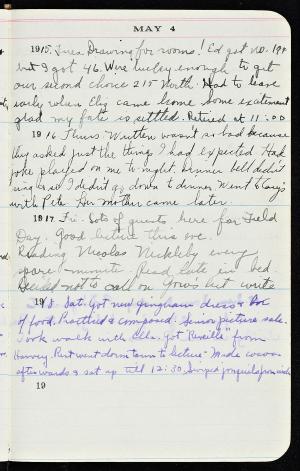 MAY 4
1915. Tues Drawing for rooms! Ed got no. 198
but I got 46. Were lucky enough to get
our second choice 215 North. Had to leave
early when Elez came home Some excitement
glad my fate is settled. Retired at 11:00
1916 Thurs Written wasn't so bad because
they asked just the things I had expected. Had
joke played on me to night. Dinner bell didn't
ring so I didn't go down to dinner. Went to
with Pete. Her mother came later.
1917. Fri. Lots of guests here for Field
Day. Good lecture this eve.
Reading Nicolas Nickleby every
spare minute. Read late in bed.
Decided not to call on but write
1918. Sat. Got new gingham dress & box
of food. Practised & composed. Senior picture sale.
Took walk with Ella. Got "Reveille" from
Harvey. Part went down town to lecture. Made cocoa
afterwards & sat up till 12:30. jonquils from
19